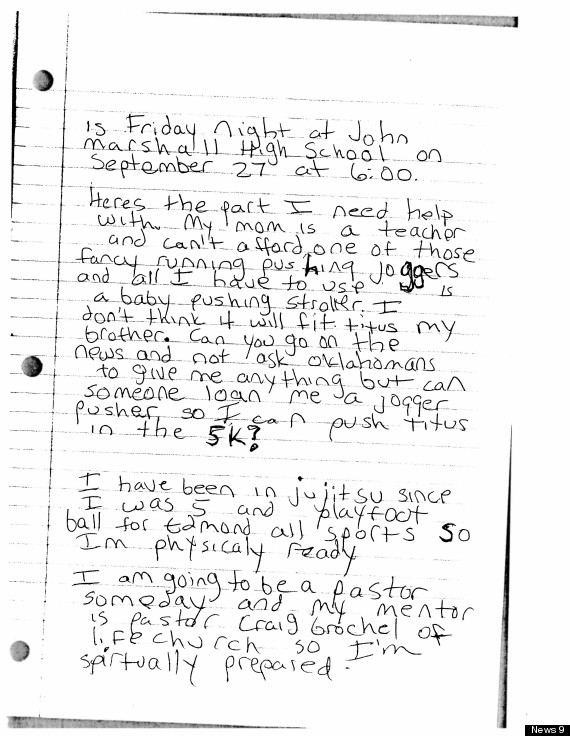 is Friday night at John
marshall High School on
September 27 at 6:00.
Heres the part I need help
with. My mom is a teacher
and can't afford one of those
fancy running pushing joggers
and all I have to use is
a baby pushing stroller. I
don't think it will fit titus my
brother. Can you go on the
news and not ask oklahomans
to give me anything but can
someone loan me a jogger
pusher so I can push titus
in the 5K?
I have been in jujitsu since
I was 5 and playfoot
ball for Edmond all sports so
I'm physicaly ready
I am going to be a pastor
someday and my mentor
is pastor Craig Grochel of
life church so I'm
spirtually prepared.
News 9